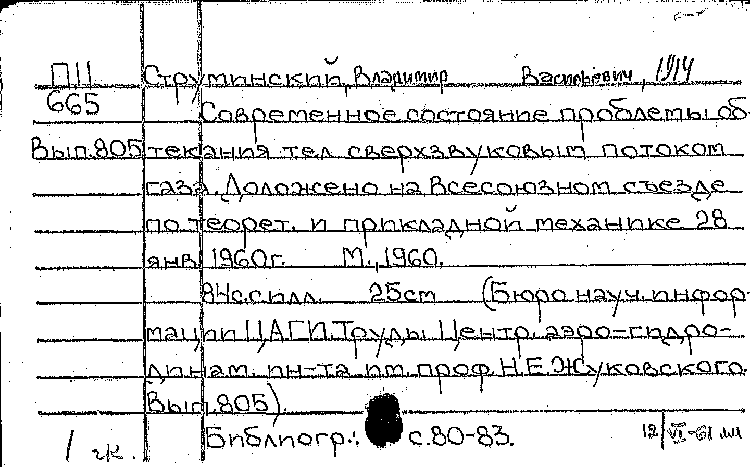 П11 Струминский, Владимир Васильевич, 1914
665 Современное состояние проблемы об-
Вып.805 текания тел сверхзвуковым потоком
газа. Доложено на Всесоюзном съезде
по теорет. и прикладной механике 28
янв. 1960г. М., 1960.
84с. с илл. 25см (Бюро науч. инфор-
мации ЦАГИ. Труды Центр. аэро-гидро-
динам. ин-та им. проф. Н.Е. Жуковского.
Вып. 805).
1 Библиогр.: с. 80-83. 12/VI-61